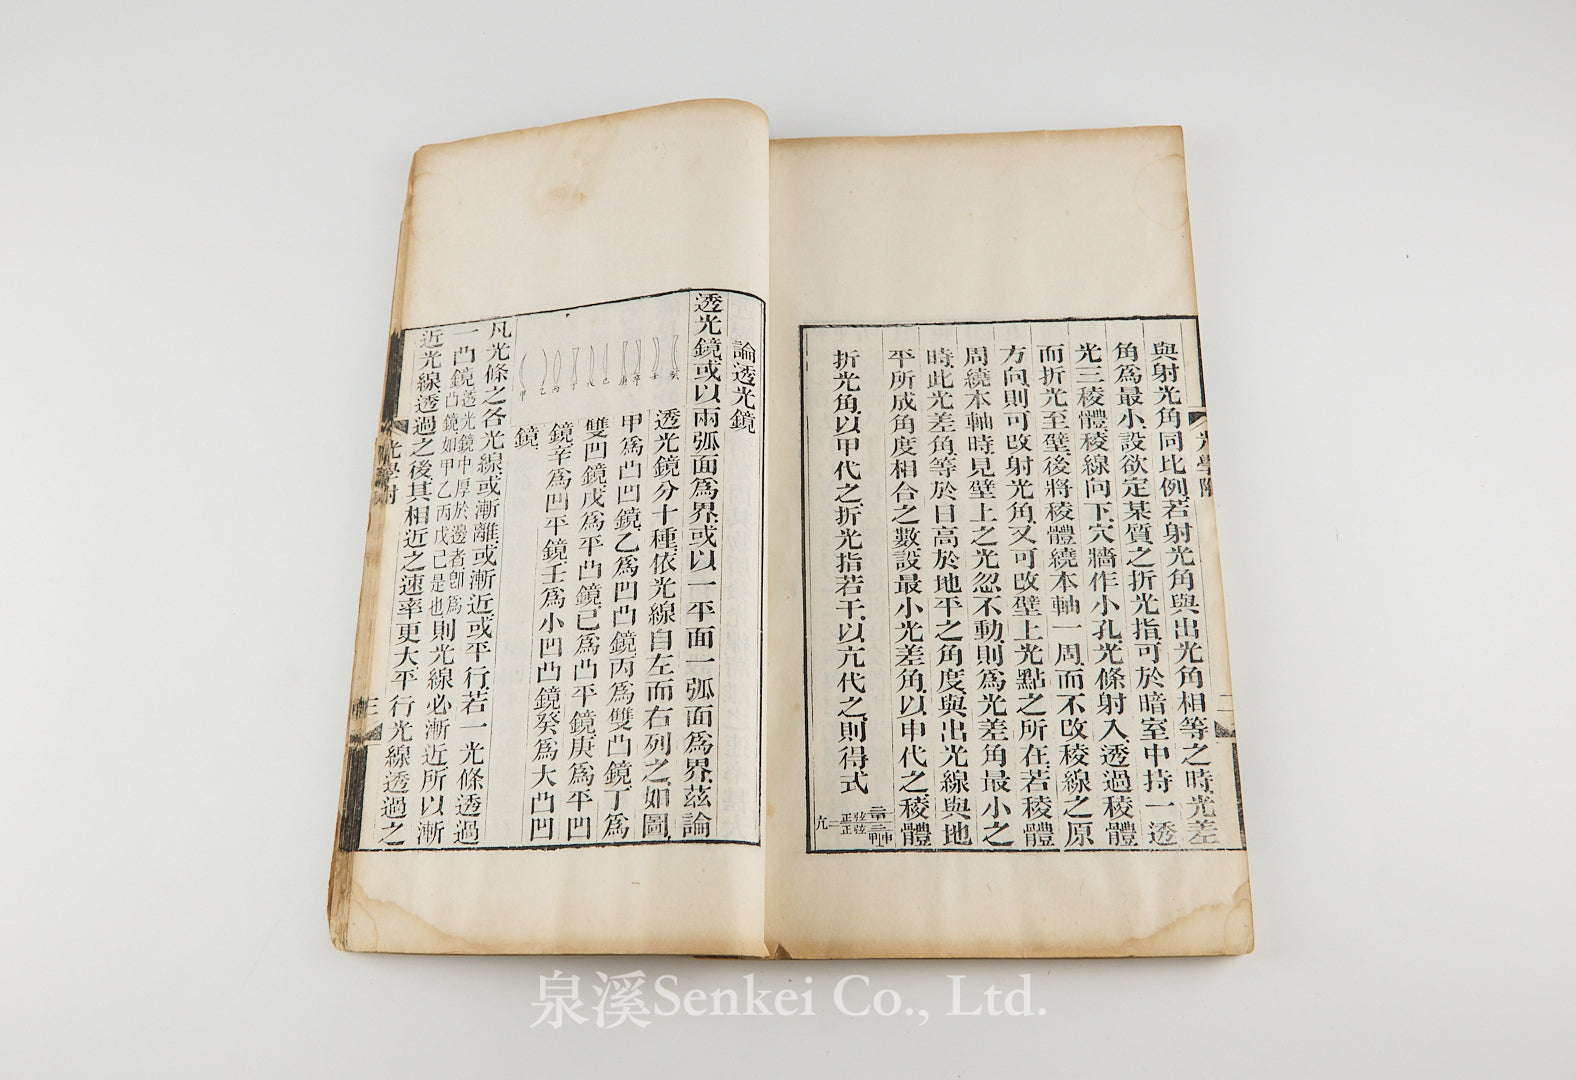 與射光角同比例若射光角與出光角相等之時光差
角為最小設欲定某質之折光指可於暗室中持一透
光三稜體稜線向下穴牆作小孔光條射入透過稜體
而折光至壁後將稜體繞本軸一周而不改稜線之原
方向則可改射光角又可改壁上光點之所在若稜體
周繞本軸時見壁上之光忽不動則為光差角最小之
時此光差角等於日高於地平之角度與出光線與地
平所成角度相合之數設最小光差角以申代之稜體
折光角以甲代之折光指若干以亢代之則得式
光學附
二
論透光鏡
透光鏡或以兩弧面為界或以一平面一弧面為界茲論
透光鏡分十種依光線自左而右列之如圖
甲為凸凹鏡乙為凹凸鏡丙為雙凸鏡丁為
雙凹鏡戊為平凸鏡己為凸平鏡庚為平凹
鏡辛為凹平鏡壬為小凹凸鏡癸為大凸凹
鏡
癸
壬
辛
庚
己
戊
丁
丙
乙
甲
凡光條之各光線或漸離或漸近或平行若一光條透過
一凸鏡透光鏡中厚於邊者卽為凸鏡如甲乙丙戊己是也則光線必漸近所以漸
近光線透過之後其相近之速率更大平行光線透過之
光學附
三
泉溪Senkei Co., Ltd.